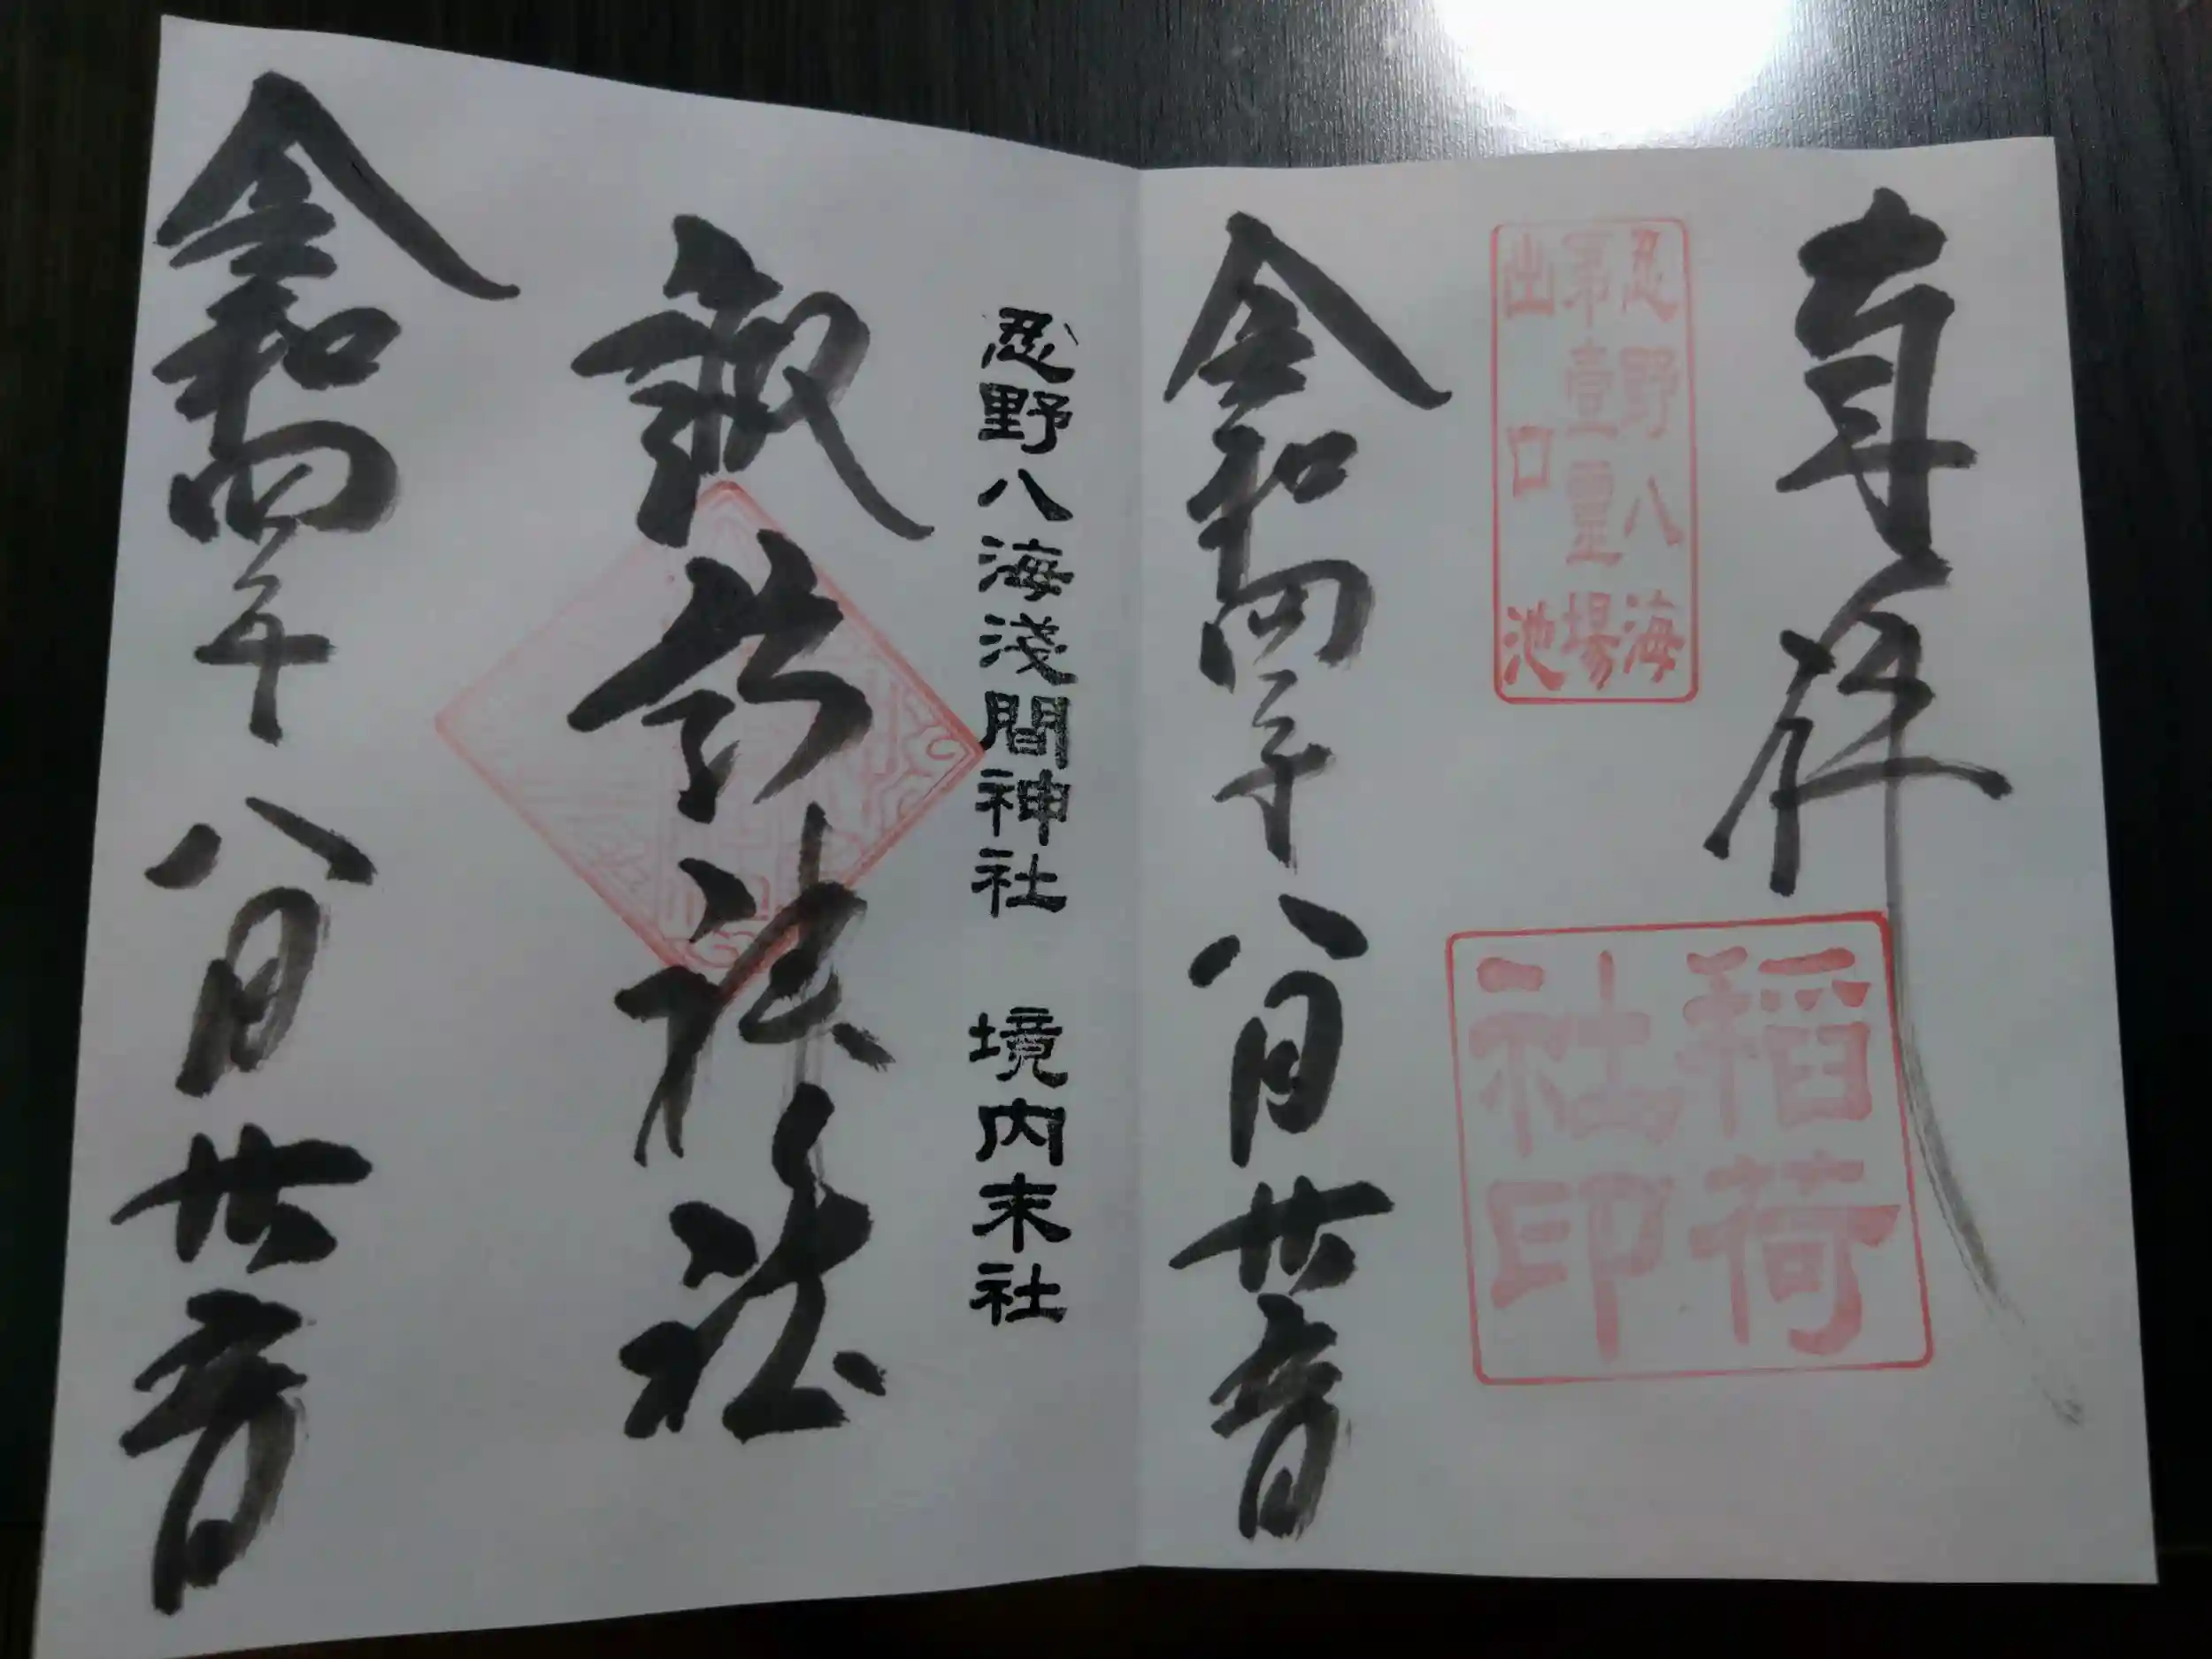 奉拝
忍野八海
第壹靈場
出口池
稲荷
社印
令和四年八月廿六日
忍野八海淺間神社　境内末社
令和四年八月廿六日